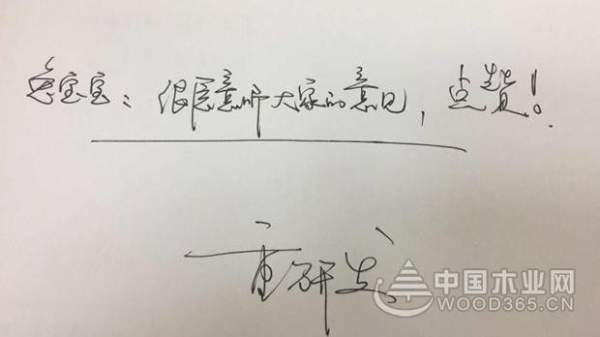 宝宝：很愿意听大家的意见，点赞！
重研发
中国木业网
WOOD365.CN